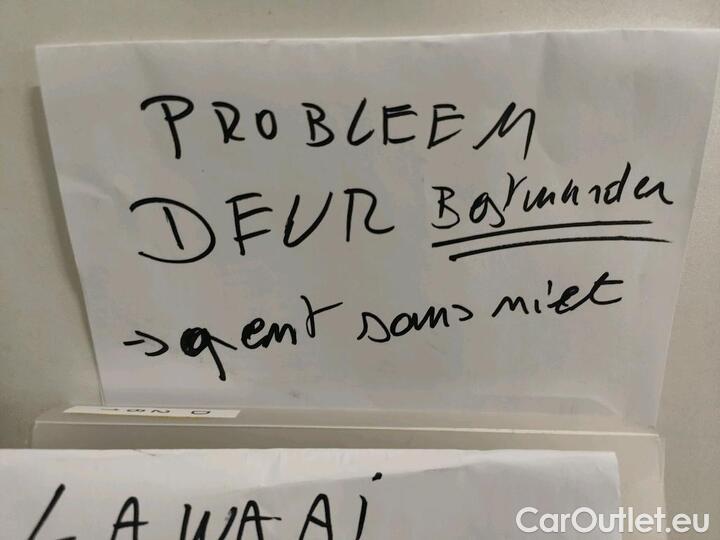 PROBLEEM
DEUR Bestuurder
→ gent soms niet
D 281
LAWAAI
CarOutlet.eu